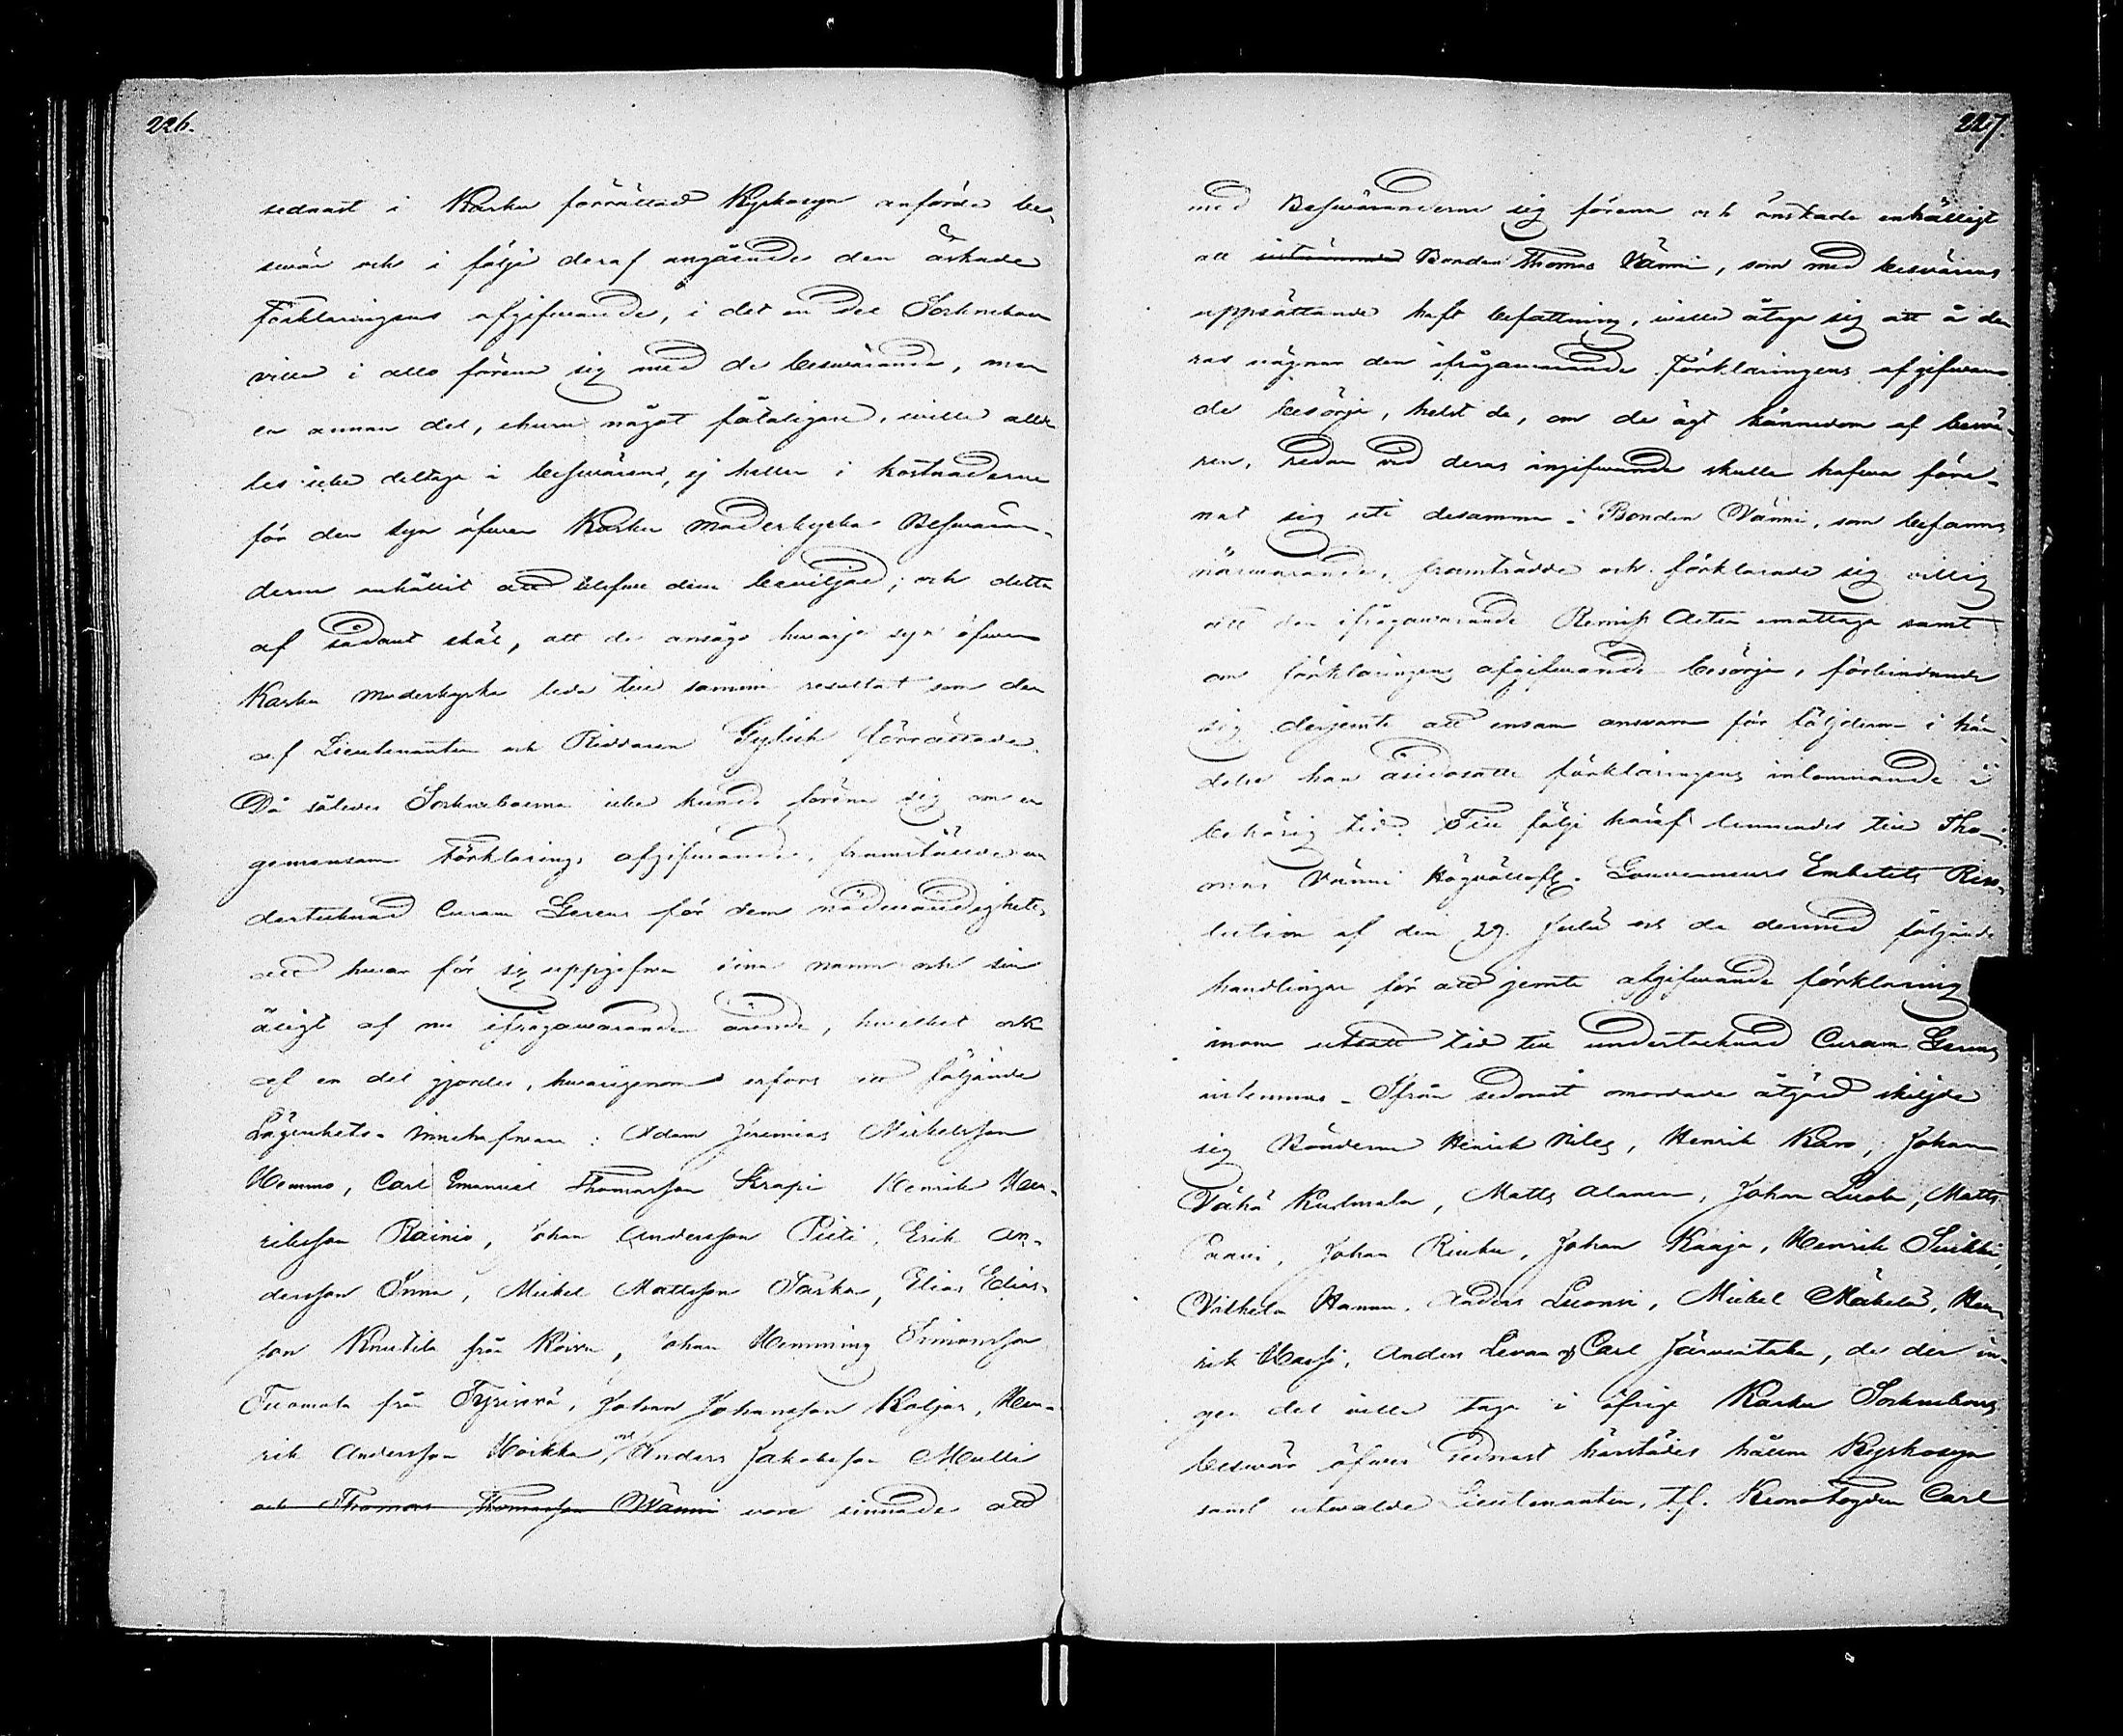 226.
sednast i Karku förrättad Kyrkosyn anförda be-
swär och i följe deraf angående den äskade
Förklaringens afgifwande, i det en del Sockneboer
ville i allo förena sig med de beswärande, men
en annan del, ehuru något fåtaligare, wille alde-
les icke deltaga i beswären, ej heller i kostnaderne
för den syn öfwer Karku moderkyrka Beswären-
derne anhållit att blifwa dem beviljad; och detta
af sådant skäl, att de ansågo hwarje syn öfwer
Karku moderkyrka leda till samma resultat som den
af Lieutenanten och Riddaren Gylich förrättade.
Då således Sockneboerne icke kunde förena sig om en
gemensam Förklarings afgifwande, framställde un-
dertecknad Curam Gerens för dem nödwändigheten
att hwar för sig uppgifwa sina namn och sin
åsigt af nu ifrågawarande ärende, hwilket och
af en del gjordes, hwarigenom erfors att följande
Lägenhets-innehafware: Adam Jeremias Mickelsson
Hemmo, Carl Emanuel Thomasson Krapi Henrik Hen-
riksson Rainio, Johan Andersson Pieti, Erik An-
dersson Inna, Mickel Mattsson Parka, Elias Elias-
son Knutila från Roivu, Johan Hemming Simonsson
Tuomala från Tyriswä, Johan Johansson Kaljas, Hen-
rik Andersson Hoikka och Anders Jakobsson Mulli
och Thomas Thomasson Wänni vore sinnade att
227.
med Beswäranderne sig förena och önskade enhälligt
att Bonden Thomas Vänni, som med besvärens
uppsättande haft befattning, wille åtaga sig att å de-
ras wägnar den ifrågawarande Förklaringens afgifwan-
de besörja, helst de, om de ägt kännedom af beswä-
ren, redan vid deras ingifwande skulle hafwa före-
nat sig uti desamma. Bonden Vänni, som befanns
närwarande, framträdde och förklarade sig villig
att den ifrågawarande Remiss Acten emottaga samt
om förklaringens afgifwande besörja, förbindande
sig derjemte att ensam answara för följderne i hän-
delse han åsidosatte förklaringens inlemnande i
behörig tid. Till följe häraf lemnades till Tho-
mas Vänni Högvällofl. Gouverneurs Embetets Reso-
lution af den 29. Julii och de dermed följande
handlingar för att jemte afgifwande förklaring
inom utsatt tid till undertecknad Curam Gerens
inlemnas. Ifrån sednast omordade åtgärd skiljde
sig Bönderne Henrik Niles, Henrik Karo, Johan
Vähä Kuelmala, Matts Alanen, Johan Lucola, Matts
Paavi, Johan Rienku, Johan Kaaja, Henrik Suikki,
Vilhelm Hannu, Anders Luonsi, Mickel Mäkelä, Hen-
rik Hassi, Anders Levan och Carl Järventaka, de der in-
gen del wille taga i öfrige Karku Socknebors
beswär öfwer sednast härstädes hållne Kyrkosyn
samt utwalde Lieutenanten, T.f. Kronofogden Carl